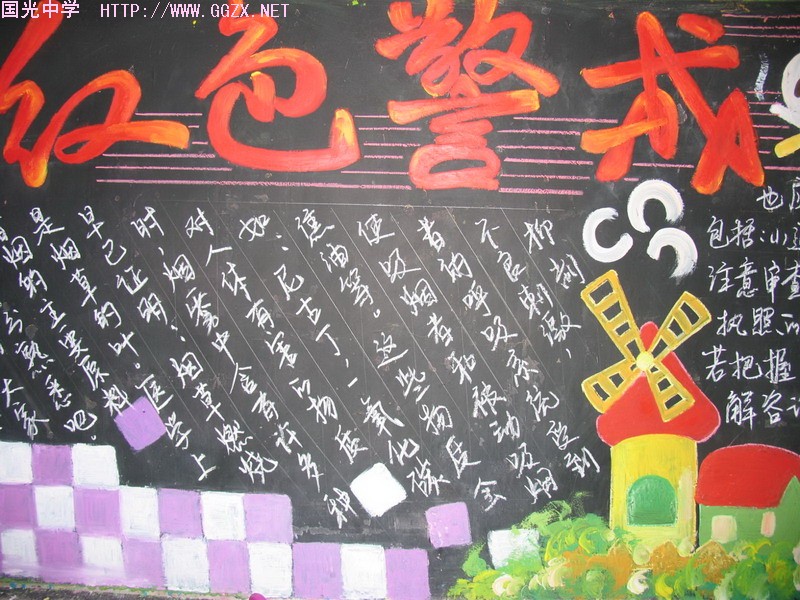 国光中学 HTTP://WWW.GGZX.NET
红色警戒
大家
熟悉吧。
烟的主要原料
是烟草的叶。医学上
早已证明：烟草燃烧
时，烟雾中含有许多种
对人体有害的物质
如：尼古丁、一氧化碳
焦油等。这些物质会
使吸烟者和被动吸烟
者的呼吸系统受到
不良刺激、
抑制
也
包括:小
注意审查
执照
若把握
解咨